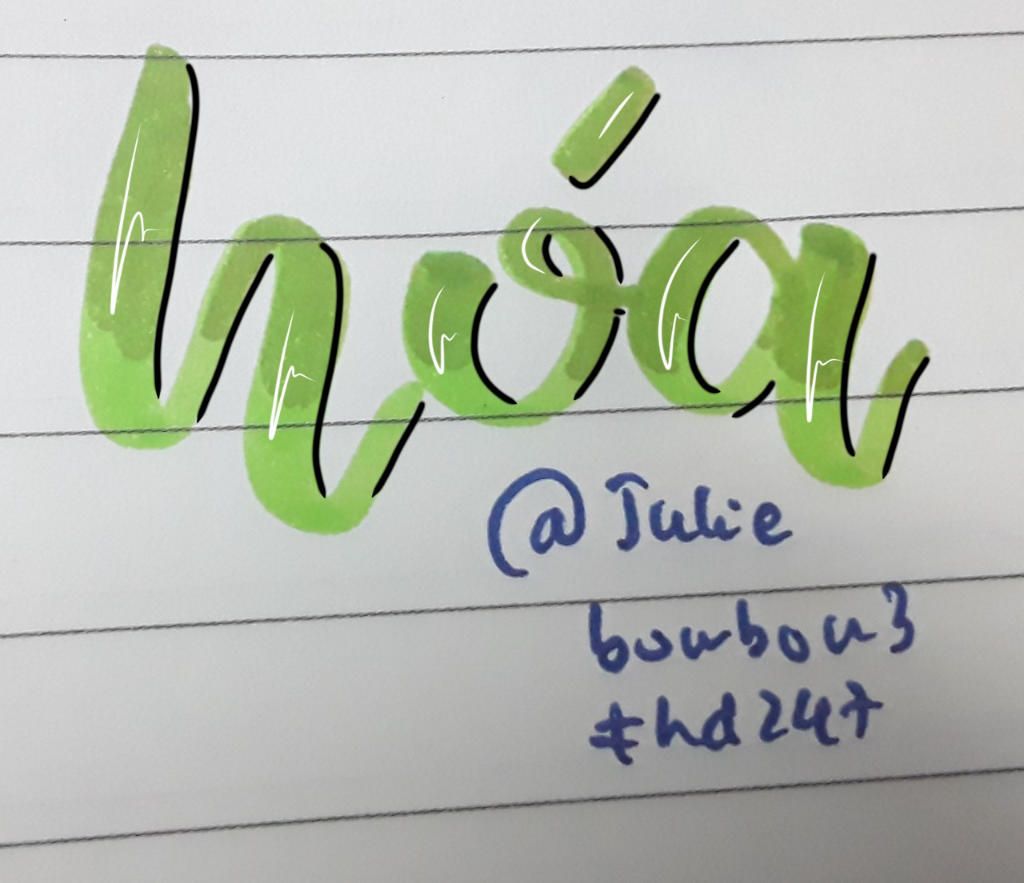 hóa
@Julie
bonbon3
#hd247